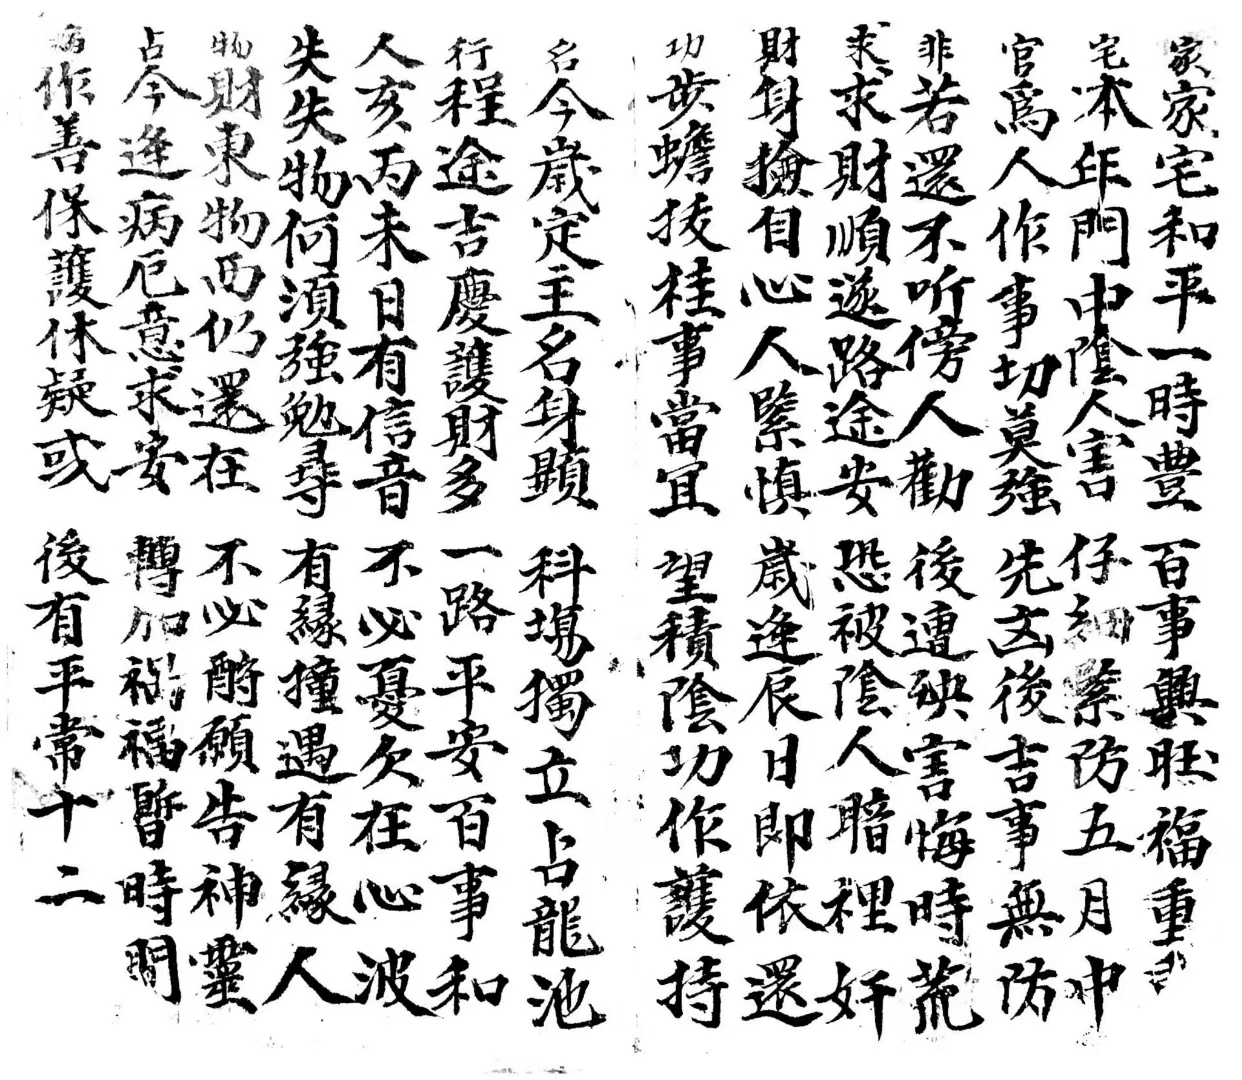 家家宅和平一時豊 百事興旺福重
宅本年門中陰人害 仔細緊防五月中
官爲人作事切莫強 先凶後吉事無防
非若還不听傍人勸 後遭殃害悔時荒
求求財順遂路途安 恐被陰人暗裡奸
財身撿自心人緊慎 歲逄辰日即依還
功步蟾拔桂事當宜 望積陰功作護持
名今歲定主名身顕 科塲獨立占龍池
行程途吉慶護財多 一路平安百事和
人亥丙未日有信音 不必憂欠在心波
失失物何須強勉尋 有緣撞遇有緣人
物財東物西仍還在 不必酧願告神靈
占今逄病厄意求安 轉加禍福暫時間
病作善保護休疑或 後有平常十二